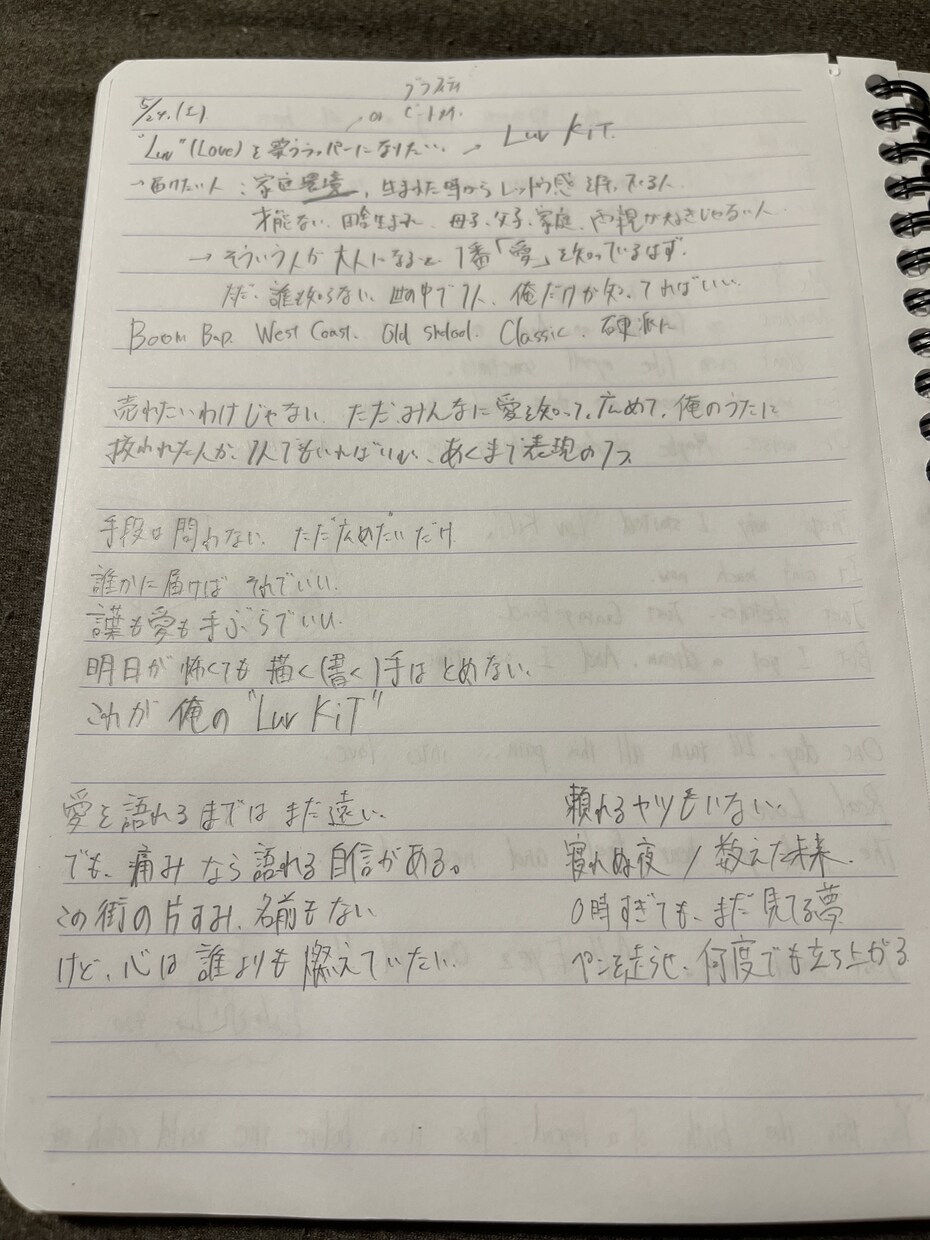 5/24.(土)
"Luv"(Love)を歌うラッパーになりたい。→ Luv KiT.
→届けたい人:家庭環境,生まれた時からレットウ感を持っている人
才能ない、田舎生まれ、母子、父子、家庭、両親が好きじゃない人
→そういう人が大人になると、1番「愛」を知っているはず。
ただ、誰も知らない、世の中で1人、俺だけが知ってればいい。
Boom Bap. West Coast. Old Shcool. Classic. 硬派に
売れたいわけじゃない、ただ、みんなに愛を知って、広めて、俺のうたに
救われた人が、1人でもいればいい、あくまで表現の1つ
手段は問わない、ただ広めたいだけ
誰かに届けば それでいい.
言葉も愛も手ぶらでいい.
明日が怖くても 描く(書く)手はとめない.
これが 俺の "Luv KiT"
愛を語れるまでは まだ遠い.
でも、痛みなら語れる自信がある。
この街の片すみ、名前もない
けど、心は誰よりも燃えていたい.
頼れるヤツもいない.
寝れぬ夜 / 数えた未来.
0時すぎても、まだ見てる夢
ペンを走らせ、何度でも立ち上がる